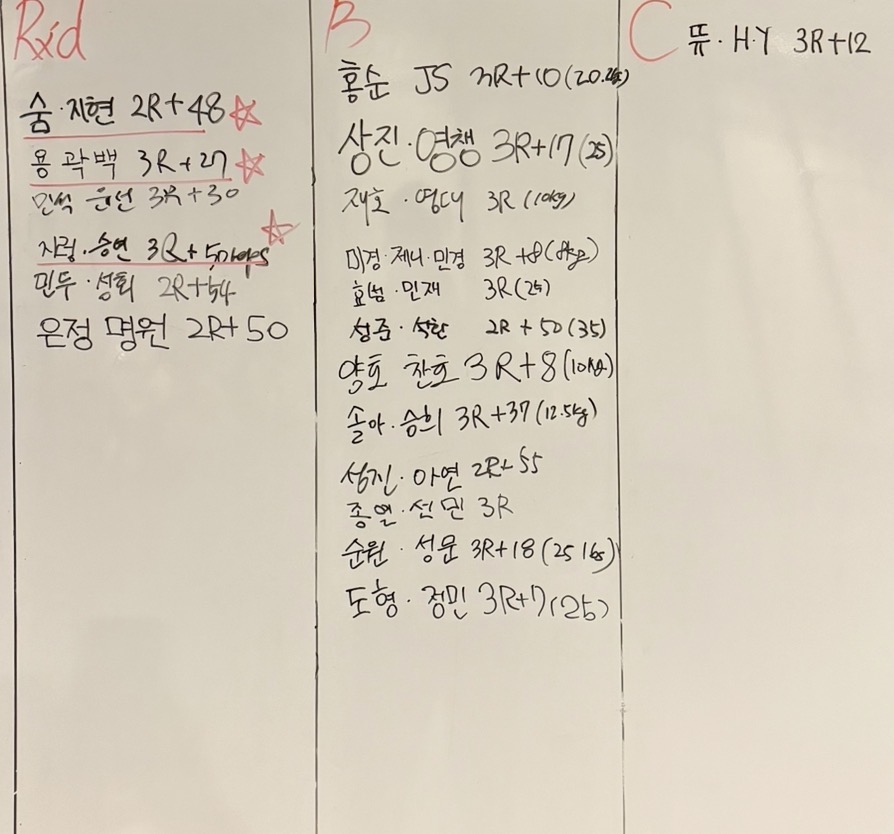 Rxd
숨·지현 2R+48
용 곽백 3R+27
민석 은선 3R+30
지렁·승연 3R+50reps
민두·성회 2R+54
은정 명원 2R+50
B
홍순 JS 3R+10(20.2kg)
상진·영챙 3R+17(25)
재호·영대 3R(10kg)
미경·제니·민경 3R+8(8kg)
효범·민재 3R(25)
성준·석환 2R+50(35)
양호 찬호 3R+8(10kg)
솔아·승희 3R+37(12.5kg)
성진·아연 2R+55
종열·선민 3R
순원·성문 3R+18(25lbs)
도형·정민 3R+7(25)
C
뜌·H·Y 3R+12